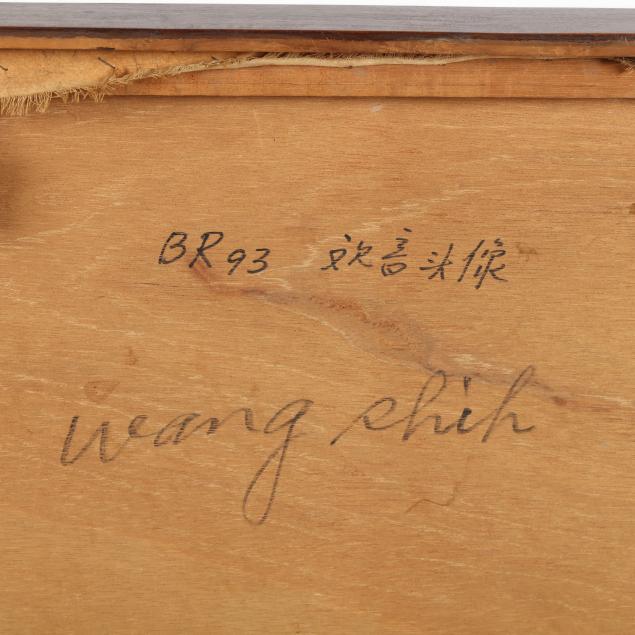 BR93 欢音头像
wang shih